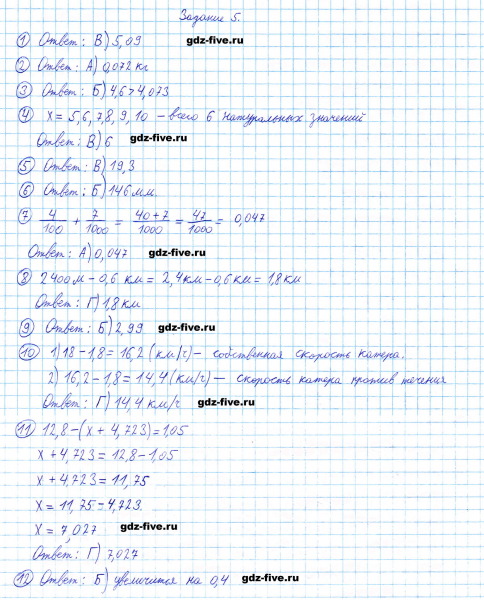 Задание 5.
1 Ответ: В) 5,09 gdz-five.ru
2 Ответ: А) 0,072 кг
3 Ответ: Б) 4,6 > 4,073
4 x = 5, 6, 7 8, 9, 10 – всего 6 натуральных значений
Ответ: В) 6 gdz-five.ru
5 Ответ: В) 19,3
6 Ответ: Б) 146 мм.
7 4/100 + 7/1000 = 40+7/1000 = 47/1000 = 0,047
Ответ: А) 0,047 gdz-five.ru
8 2400м – 0,6 км = 2,4км – 0,6км = 1,8км
Ответ: Г) 1,8 км
9 Ответ: Б) 2,99 gdz-five.ru
10 1) 18 – 1,8 = 16,2 (км/ч) – собственная скорость катера.
2) 16,2 – 1,8 = 14,4 (км/ч) – скорость катера против течения
Ответ: Г) 14,4 км/ч gdz-five.ru
11 12,8 – (x + 4,723) = 1,05
x + 4,723 = 12,8 – 1,05
x + 4,723 = 11,75
x = 11,75 – 4,723
x = 7,027 gdz-five.ru
Ответ: Г) 7,027
12 Ответ: Б) увеличится на 0,4 gdz-five.ru